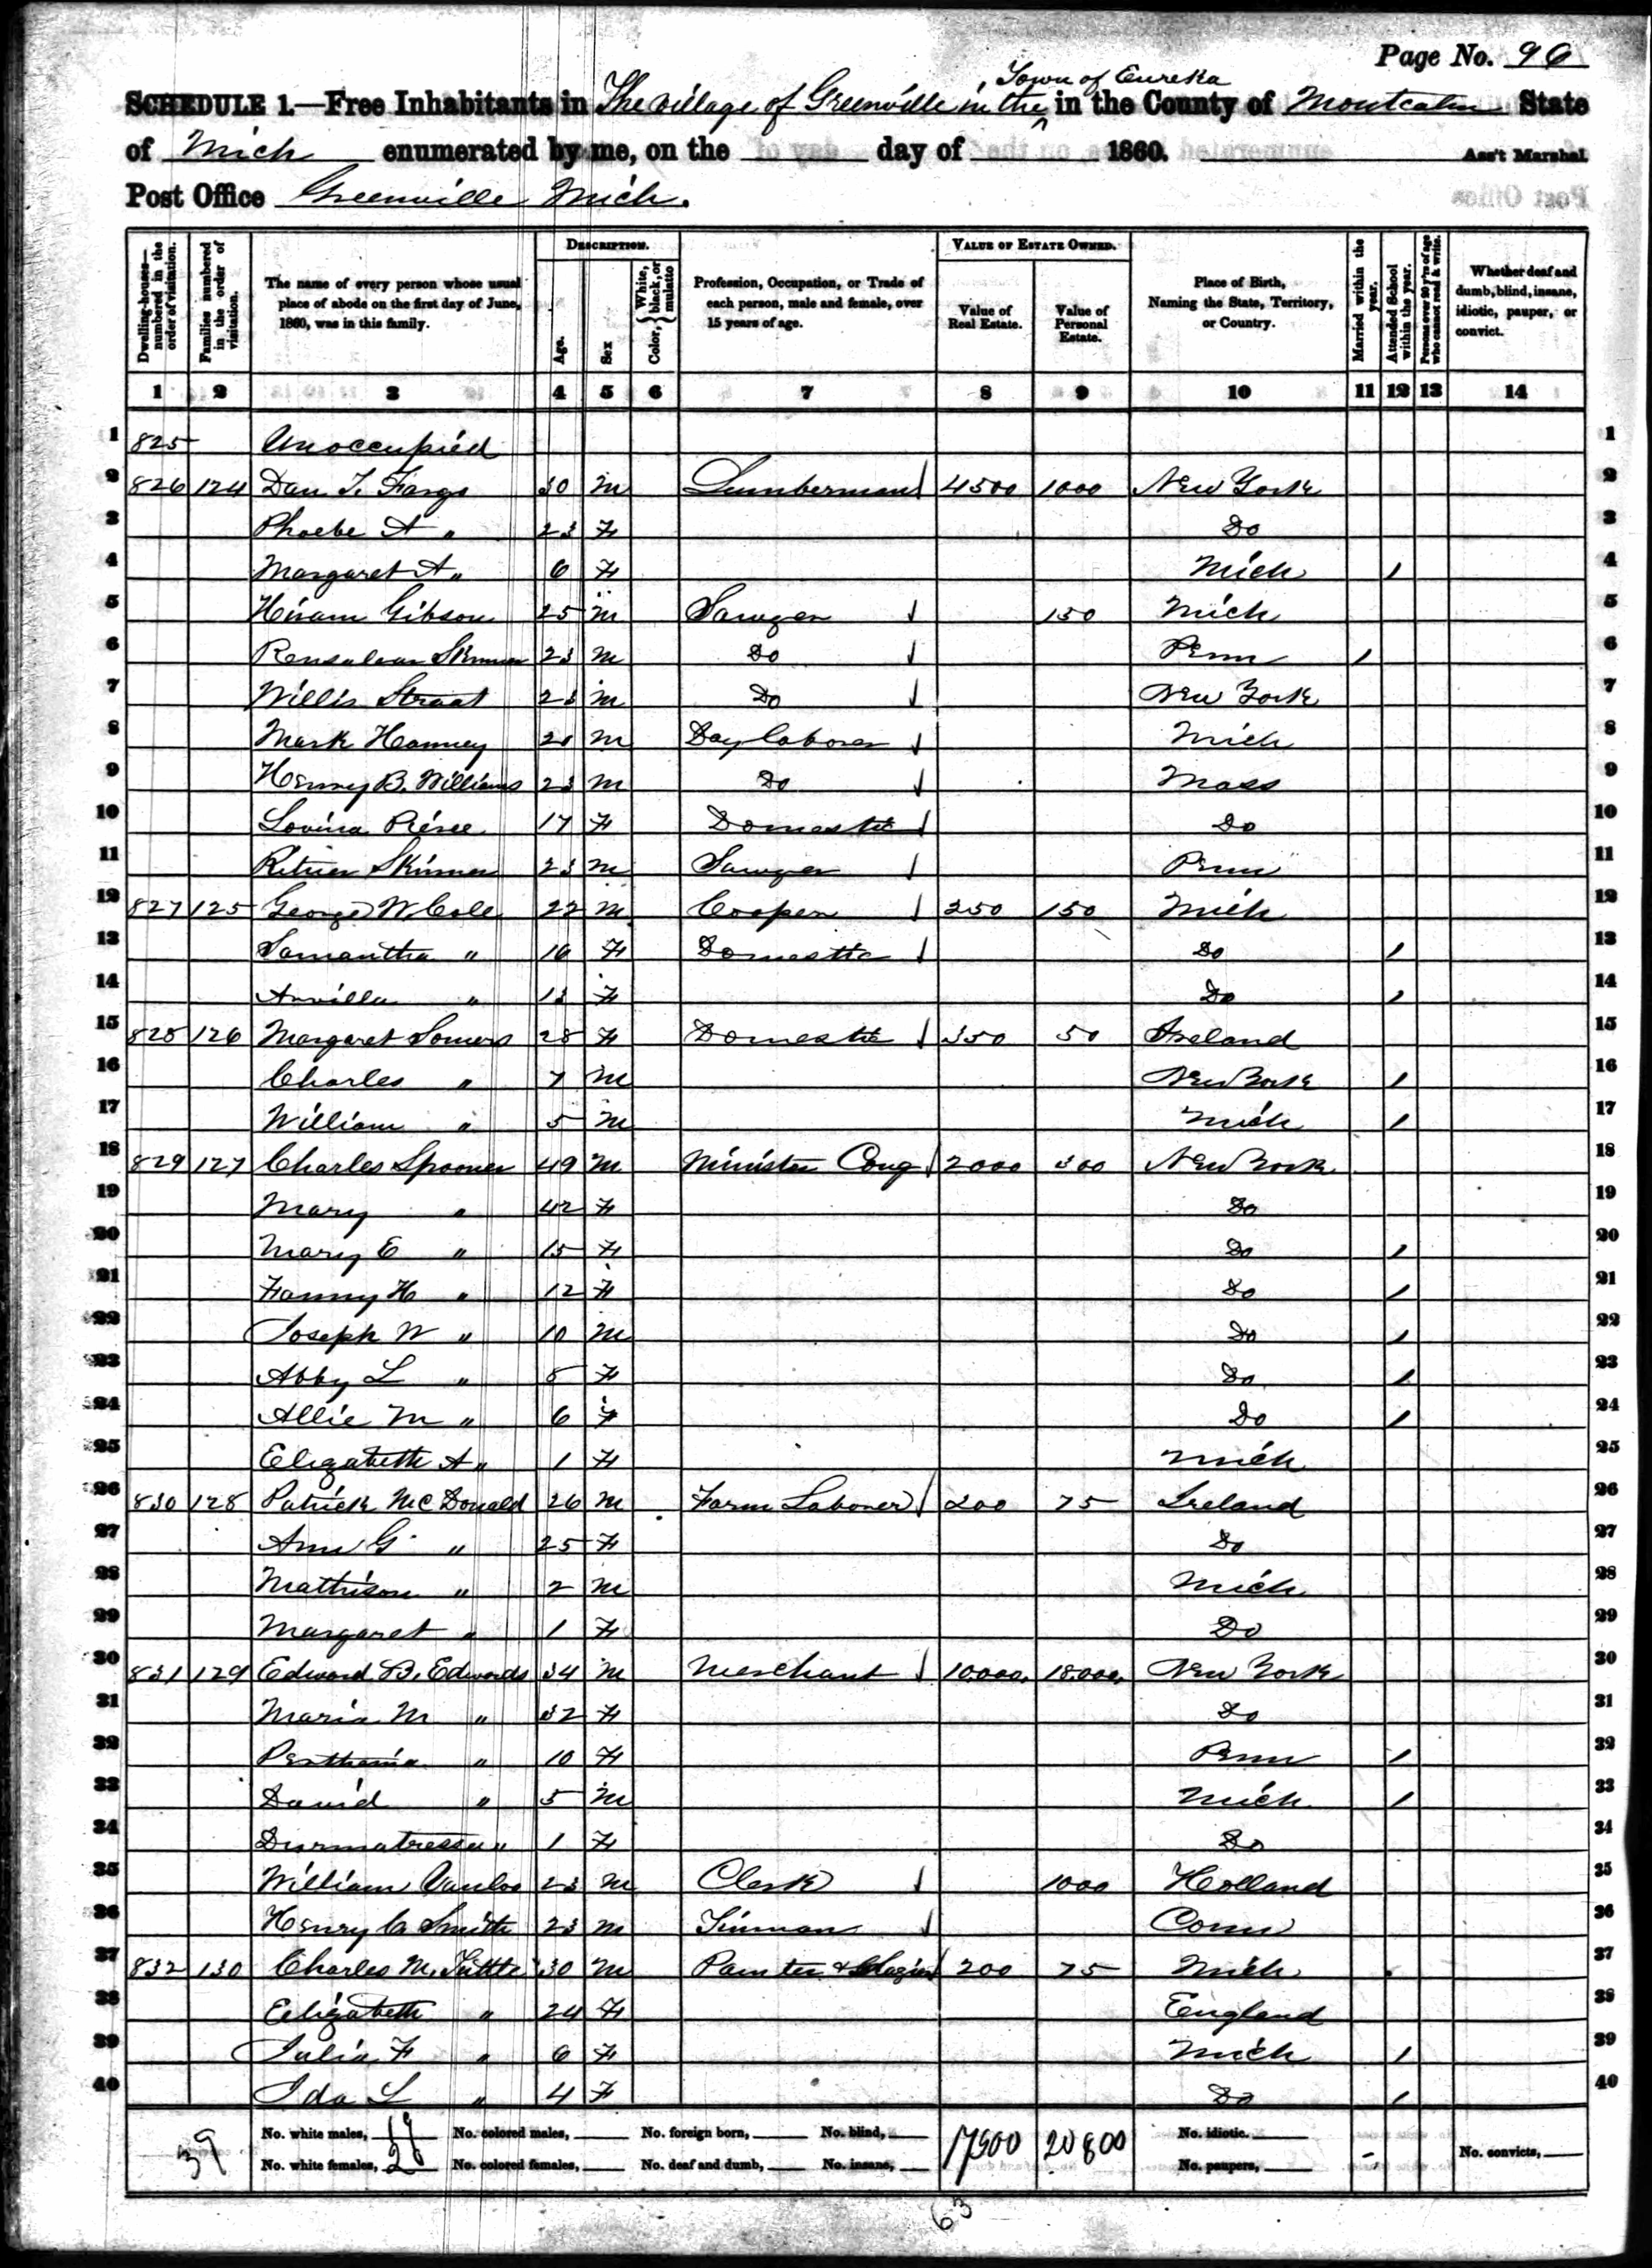 Page No. 96
Town of Eureka
SCHEDULE 1.—Free Inhabitants in The village of Greenville in the ^ in the County of Montcalm State
of Mich enumerated by me, on the day of 1860. Ass't Marshal.
Post Office Greenville Mich.
Dwelling-houses—numbered in the order of visitation. Families numbered in the order of visitation. The name of every person whose usual place of abode on the first day of June, 1860, was in this family. DESCRIPTION. Age. Sex Color, {White, black, or mulatto Profession, Occupation, or Trade of each person, male and female, over 15 years of age. VALUE OF ESTATE OWNED. Value of Real Estate. Value of Personal Estate. Place of Birth, Naming the State, Territory, or Country. Married within the year. Attended School within the year. Persons over 20 y'rs of age who cannot read & write. Whether deaf and dumb, blind, insane, idiotic, pauper, or convict.
1 2 3 4 5 6 7 8 9 10 11 12 13 14
1 825 Unoccupied 1
2 826 124 Dan T. Fargo 30 M Lumberman 4500 1000 New York 2
3 Phoebe A " 23 F Do 3
4 Margaret A " 6 F Mich / 4
5 Hiram Gibson 25 M Sawyer 150 Mich 5
6 Skinner 23 M Do Penn / 6
7 Willis Straat 23 M Do New York 7
8 Mark Hanney 20 M Day laborer Mich 8
9 Henry B. Williams 23 M Do Mass 9
10 Lovina Pierce 17 F Domestic Do 10
11 Skinner 23 M Sawyer Penn 11
12 827 125 George W Cole 22 M Cooper 250 150 Mich 12
13 Samantha " 16 F Domestic Do / 13
14 Arvilla " 13 F Do / 14
15 828 126 Margaret Somers 28 F Domestic 350 50 Ireland 15
16 Charles " 7 M New York / 16
17 William " 5 M Mich / 17
18 829 127 Charles Spooner 49 M Minister Cong 2000 300 New York 18
19 Mary " 42 F Do 19
20 Mary E " 15 F Do / 20
21 Fanny H " 12 F Do / 21
22 Joseph W " 10 M Do / 22
23 Abby L " 8 F Do / 23
24 Allie M " 6 F Do / 24
25 Elizabeth A " 1 F Mich 25
26 830 128 Patrick McDonald 26 M Farm Laborer 200 75 Ireland 26
27 Ann G " 25 F Do 27
28 Mathison " 2 M Mich 28
29 Margaret " 1 F Do 29
30 831 129 Edward B. Edwards 34 M Merchant 10,000, 18,000, New York 30
31 Maria M " 32 F Do 31
32 " 10 F Penn / 32
33 David " 5 M Mich / 33
34 " 1 F Do 34
35 William Vanloo 23 M Clerk 1000 Holland 35
36 Henry C Smith 23 M Tinman Conn 36
37 832 130 Charles M. Tuttle 30 M Painter & Glazier 200 75 Mich 37
38 Elizabeth " 24 F England 38
39 Julia F " 6 F Mich / 39
40 Ida L " 4 F Do / 40
39 No. white males, 19 No. colored males, No. foreign born, No. blind, 17500 20800 No. idiotic.
No. white females, 20 No. colored females, No. deaf and dumb, No. insane, No. paupers, No. convicts,
63